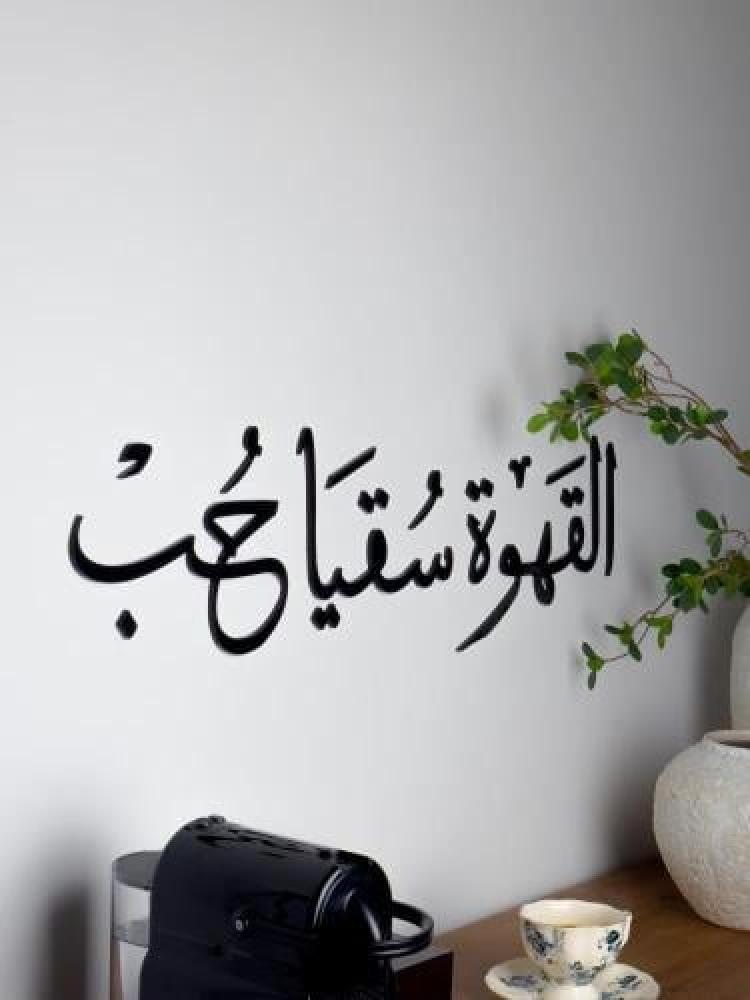 القَهْوَة سُقيَا حُبْ